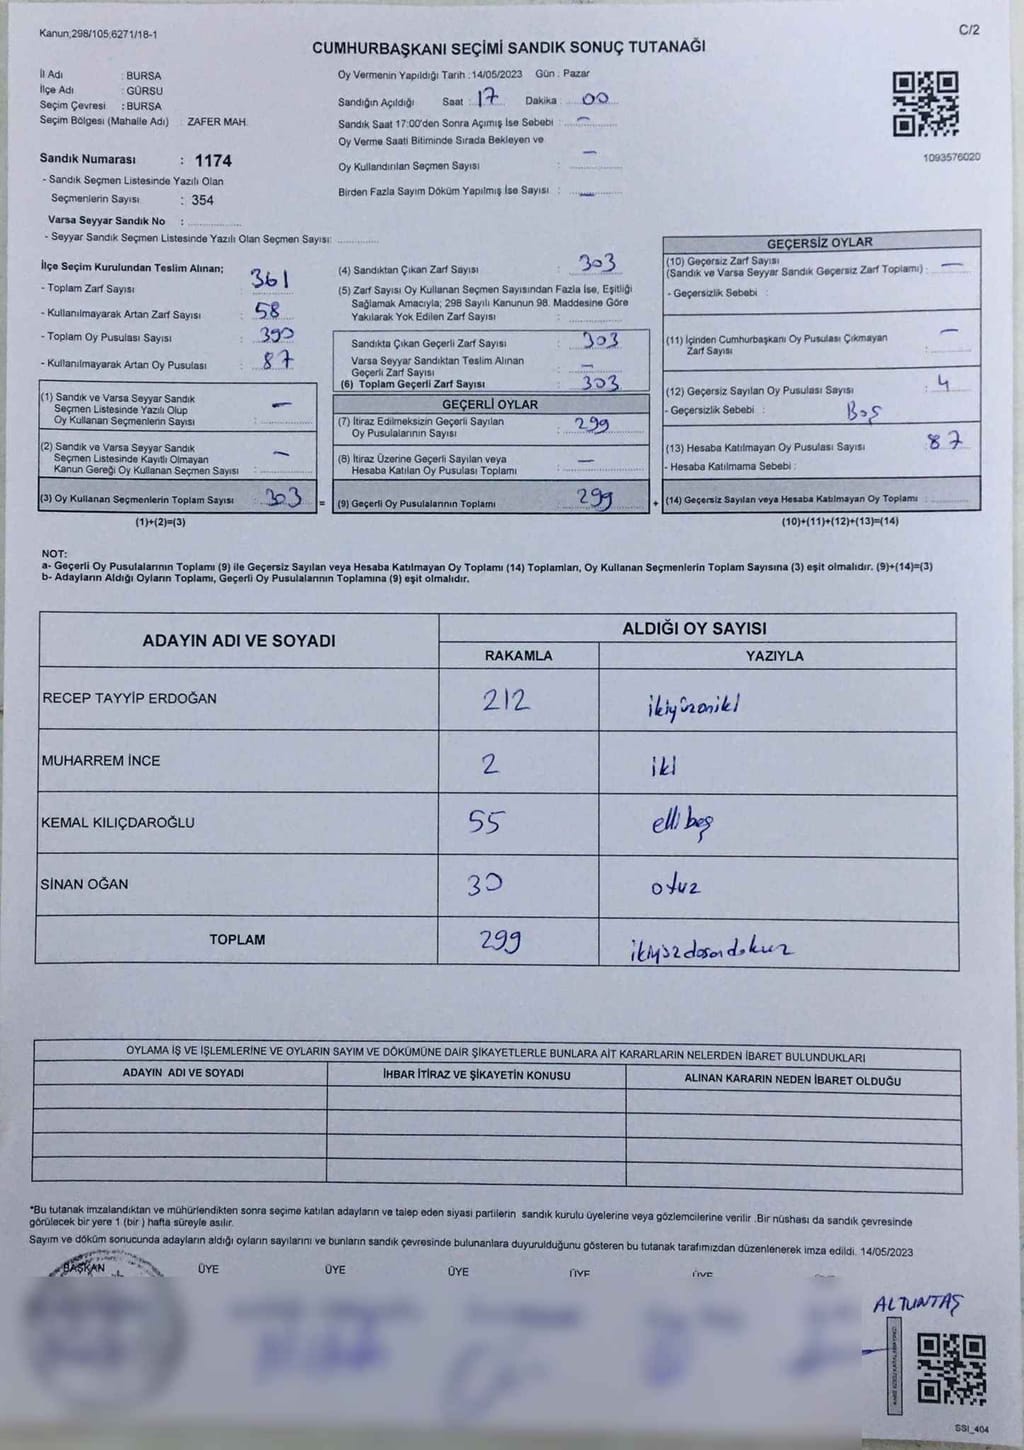 Kanun;298/105;6271/18-1
C/2
CUMHURBAŞKANI SEÇİMİ SANDIK SONUÇ TUTANAĞI
İl Adı : BURSA
İlçe Adı : GÜRSU
Seçim Çevresi : BURSA
Seçim Bölgesi (Mahalle Adı) : ZAFER MAH.
Sandık Numarası : 1174
- Sandık Seçmen Listesinde Yazılı Olan
Seçmenlerin Sayısı : 354
Varsa Seyyar Sandık No :
- Seyyar Sandık Seçmen Listesinde Yazılı Olan Seçmen Sayısı:
Oy Vermenin Yapıldığı Tarih : 14/05/2023 Gün : Pazar
Sandığın Açıldığı Saat : 17 Dakika : 00
Sandık Saat 17:00'den Sonra Açımış İse Sebebi : —
Oy Verme Saati Bitiminde Sırada Bekleyen ve
Oy Kullandırılan Seçmen Sayısı : —
Birden Fazla Sayım Döküm Yapılmış İse Sayısı : —
1093576020
İlçe Seçim Kurulundan Teslim Alınan;
- Toplam Zarf Sayısı : 361
- Kullanılmayarak Artan Zarf Sayısı : 58
- Toplam Oy Pusulası Sayısı : 390
- Kullanılmayarak Artan Oy Pusulası : 87
(1) Sandık ve Varsa Seyyar Sandık
Seçmen Listesinde Yazılı Olup
Oy Kullanan Seçmenlerin Sayısı : —
(2) Sandık ve Varsa Seyyar Sandık
Seçmen Listesinde Kayıtlı Olmayan
Kanun Gereği Oy Kullanan Seçmen Sayısı : —
(3) Oy Kullanan Seçmenlerin Toplam Sayısı : 303 =
(1)+(2)=(3)
(4) Sandıktan Çıkan Zarf Sayısı : 303
(5) Zarf Sayısı Oy Kullanan Seçmen Sayısından Fazla İse, Eşitliği
Sağlamak Amacıyla; 298 Sayılı Kanunun 98. Maddesine Göre
Yakılarak Yok Edilen Zarf Sayısı :
Sandıkta Çıkan Geçerli Zarf Sayısı : 303
Varsa Seyyar Sandıktan Teslim Alınan
Geçerli Zarf Sayısı : —
(6) Toplam Geçerli Zarf Sayısı : 303
GEÇERLİ OYLAR
(7) İtiraz Edilmeksizin Geçerli Sayılan
Oy Pusulalarının Sayısı : 299
(8) İtiraz Üzerine Geçerli Sayılan veya
Hesaba Katılan Oy Pusulası Toplamı : —
(9) Geçerli Oy Pusulalarının Toplamı : 299 +
GEÇERSİZ OYLAR
(10) Geçersiz Zarf Sayısı
(Sandık ve Varsa Seyyar Sandık Geçersiz Zarf Toplamı) : —
- Geçersizlik Sebebi :
(11) İçinden Cumhurbaşkanı Oy Pusulası Çıkmayan
Zarf Sayısı : —
(12) Geçersiz Sayılan Oy Pusulası Sayısı : 4
- Geçersizlik Sebebi : Boş
(13) Hesaba Katılmayan Oy Pusulası Sayısı : 87
- Hesaba Katılmama Sebebi :
(14) Geçersiz Sayılan veya Hesaba Katılmayan Oy Toplamı :
(10)+(11)+(12)+(13)=(14)
NOT:
a- Geçerli Oy Pusulalarının Toplamı (9) ile Geçersiz Sayılan veya Hesaba Katılmayan Oy Toplamı (14) Toplamları, Oy Kullanan Seçmenlerin Toplam Sayısına (3) eşit olmalıdır. (9)+(14)=(3)
b- Adayların Aldığı Oyların Toplamı, Geçerli Oy Pusulalarının Toplamına (9) eşit olmalıdır.
ADAYIN ADI VE SOYADI
ALDIĞI OY SAYISI
RAKAMLA YAZIYLA
RECEP TAYYİP ERDOĞAN 212 ikiyüzoniki
MUHARREM İNCE 2 iki
KEMAL KILIÇDAROĞLU 55 ellibeş
SİNAN OĞAN 30 otuz
TOPLAM 299 ikiyüzdoksandokuz
OYLAMA İŞ VE İŞLEMLERİNE VE OYLARIN SAYIM VE DÖKÜMÜNE DAİR ŞİKAYETLERLE BUNLARA AİT KARARLARIN NELERDEN İBARET BULUNDUKLARI
ADAYIN ADI VE SOYADI İHBAR İTİRAZ VE ŞİKAYETİN KONUSU ALINAN KARARIN NEDEN İBARET OLDUĞU
*Bu tutanak imzalandıktan ve mühürlendikten sonra seçime katılan adayların ve talep eden siyasi partilerin sandık kurulu üyelerine veya gözlemcilerine verilir .Bir nüshası da sandık çevresinde
görülecek bir yere 1 (bir ) hafta süreyle asılır.
Sayım ve döküm sonucunda adayların aldığı oyların sayılarını ve bunların sandık çevresinde bulunanlara duyurulduğunu gösteren bu tutanak tarafımızdan düzenlenerek imza edildi. 14/05/2023
BAŞKAN ÜYE ÜYE ÜYE ÜYE ÜYE
ALTUNTAŞ
SSI_404